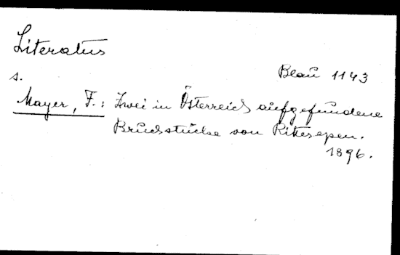 Literatus
Blau 1143
s.
Mayer, F.: Zwei in Österreich aufgefundene
Bruchstücke von Ritterepen.
1896.